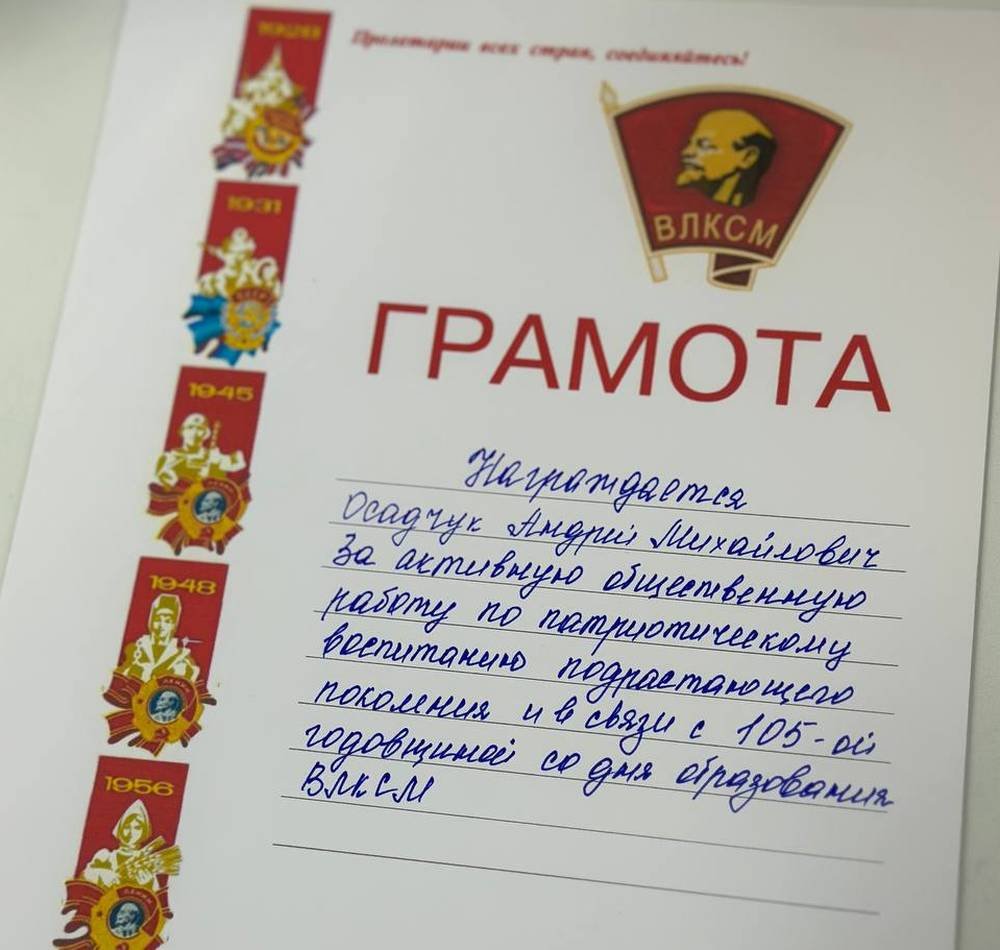 Пролетарии всех стран, соединяйтесь!
ВЛКСМ
ГРАМОТА
Награждается
Осадчук Андрей Михайлович
За активную общественную
работу по патриотическому
воспитанию подрастающего
поколения и в связи с 105-ой
годовщиной со дня образования
ВЛКСМ
1931
1945
ЛЕНИН
1948
ЛЕНИН
1956
ЛЕНИН